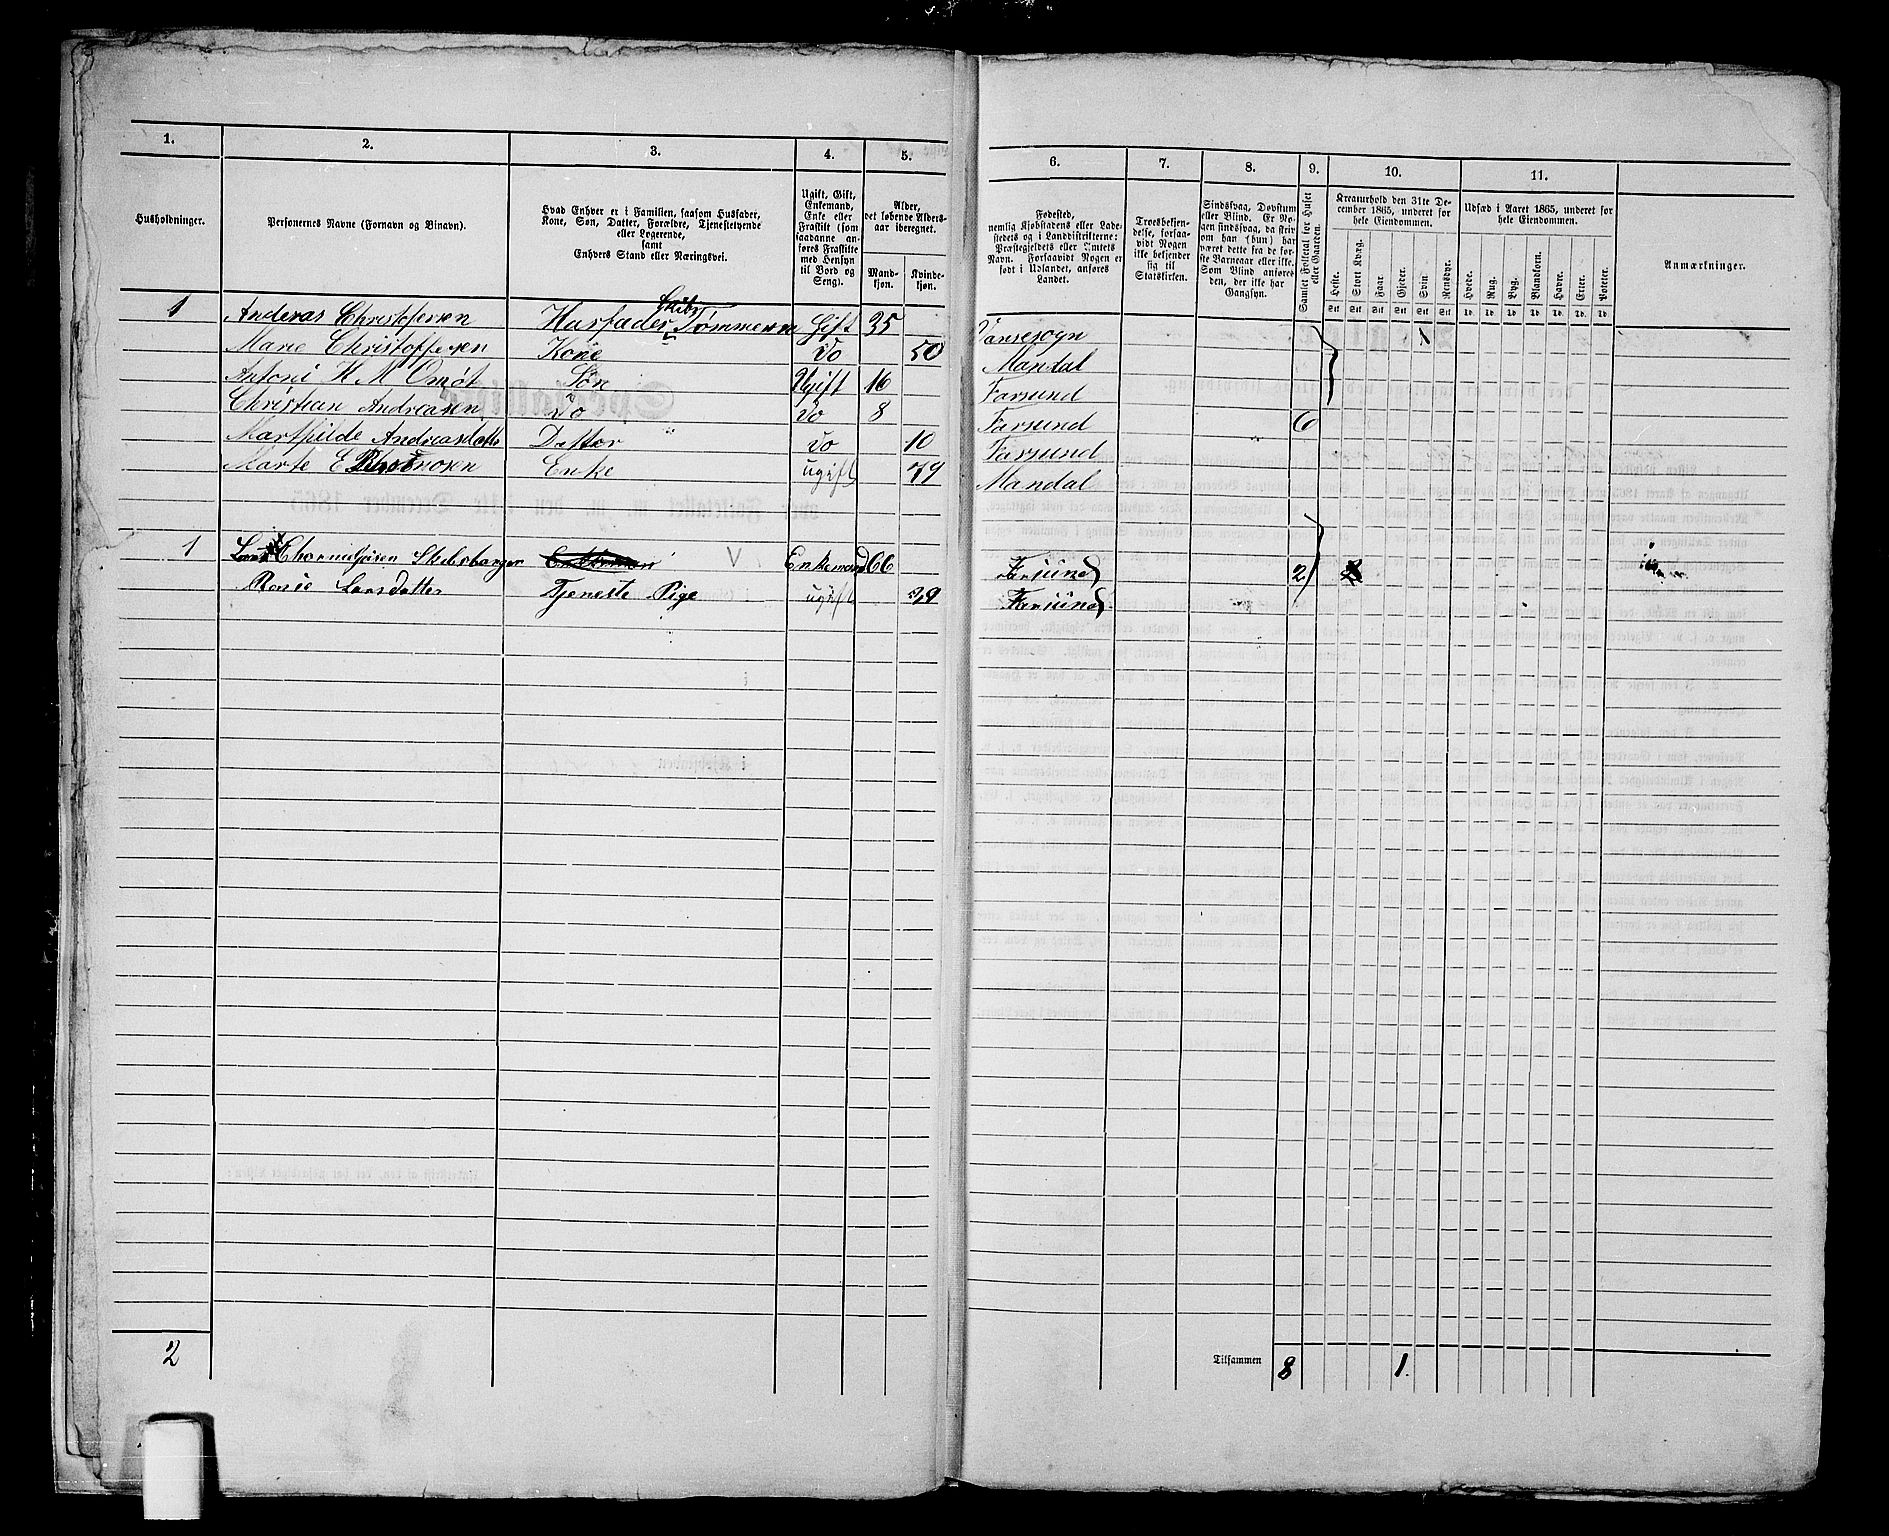 1. 2. 3. 4. 5. 6. 7. 8. 9. 10. 11.
Husholdninger.
Personernes Navne (Fornavn og Binavn).
Hvad Enhver er i Familien, saasom Husfader,
Kone, Søn, Datter, Forældre, Tjenestetyende
eller Logerende,
samt
Enhvers Stand eller Næringsvei.
Ugift, Gift,
Enkemand,
Enke eller
Fraskilt (som
saadanne an-
føres Fraskilte
med Hensyn
til Bord og
Seng).
Alder,
det løbende Alders-
aar iberegnet.
Mand-
kjøn.
Kvinde-
kjøn.
Fødested,
nemlig Kjøbstadens eller Lade-
stedets og i Landdistrikterne:
Præstegjeldets eller Amtets
Navn. Forsaavidt Nogen er
født i Udlandet, anføres
Landet.
Troesbekjen-
delse, forsaa-
vidt Nogen
ikke bekjender
sig til
Statskirken.
Sindssvag, Døvstum
eller Blind. Er No-
gen sindssvag, da skri-
ves om han (hun) har
været dette fra de før-
ste Barneaar eller ikke.
Som Blind anføres
den, der ikke har
Gangsyn.
Samlet Folketal for Huset
eller Gaarden.
Kreaturhold den 31te De-
cember 1865, underet for
hele Eiendommen.
Heste. Stort Kvæg. Faar. Gjeder. Svin. Rensdyr.
Stk Stk Stk Stk Stk Stk
Udsæd i Aaret 1865, underet for
hele Eiendommen.
Hvede. Rug. Byg. Blandkorn. Havre. Erter. Poteter.
Td. Td. Td. Td. Td. Td. Td.
Anmærkninger.
1 Anderas Christofersen Husfader Tømmermn Gift 35 Vansesogn 1
Marie Christoffersen Kone Do 50 Mandal
Antoni H M Omøt Søn Ugift 16 Farsund
Christian Andreasen Do Do 8 Farsund 6
Marthilde Andreasdatte Datter Do 10 Farsund
Marte E Enke ugift 79 Mandal
1 Enkemand 66 Farsund 2
Larsdatter Tjeneste Pige ugift 29 Farsund
2 Tilsammen 8 1.